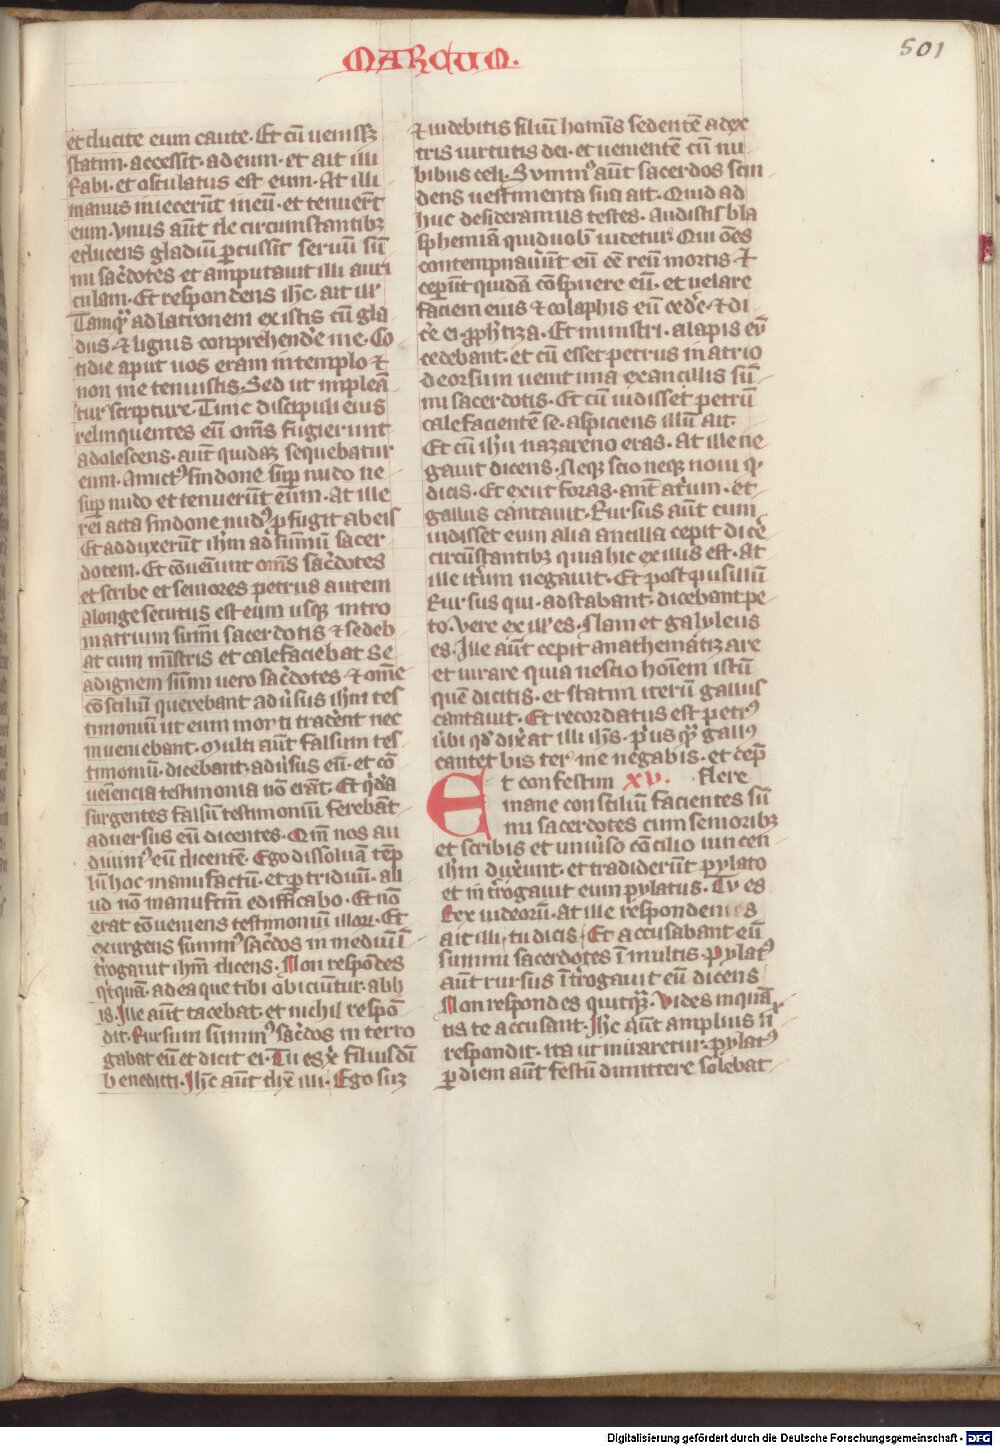 MARCUM.
501
et ducite eum caute. Et cū ueniss&
statim. accessit. ad eum. et ait illi
Rabi. et osculatus est eum. At illi
manus iniecerūt in eū. et tenuerūt
eum. Vnus aūt de circumstantibꝫ
educens gladiū ꝑcussit seruū sūm
mi sac̄dotes et amputauit illi auri
culam. Et respondens ih̄c. ait ill'
Tamqꝫ ad latronem existis cū gla
diis & lignis conprehend'e me. Co
tidie aput uos eram in templo &
non me tenuistis. Sed ut impleā
tur scripture. Tunc discipuli eius
relinquentes eū om̄s fugierunt
adolescens. aūt quidaꝫ sequebatur
eum. Amict' sindone sup̄ nudo ne
sup̄ nudo et tenuerūt eum. At ille
rei acta sindone nud' ꝓfugit ab eis
Et adduxerūt ih̄m ad sūmū sacer
dotem. Et cōueniunt om̄s sac̄dotes
et scribe et seniores petrus autem
alonge secutus est eum usqꝫ intro
in atrium sūmi sacerdotis & sedeb
at cum mīstris et calefaciebat se
ad ignem sūmi uero sac̄dotes & om̄e
cōsciliū querebant adu'sus ih̄m tes
timoniū ut eum morti trad'ent nec
inueniebant. Multi aūt falsum tes
timoniū. dicebant. adu'sus eū. et cō
ueiencia testimonia nō erāt. Et q'dā
surgentes falsū testimoniū ferebāt
aduersus eū dicentes. Qm̄ nos au
diuim' eū dicentē. Ego dissoluā tēp
lū hoc manu factū. et ꝑ triduū. ali
ud nō manu fctm̄ edifficabo. Et nō
erat cōueniens testimoniū illoꝝ. Et
exurgens summ' sac̄dos in mediū ī
t'rogauit ih̄m dicens. Non respōdes
q'tquā. ad ea que tibi obiciūtur. ab h
is. Ille aūt tacebat. et nichil respō
dit. Rursum summ' sac̄dos interro
gabat eū et dicit ei. Tu es xp̄ filius dī
benedicti. Ih̄c aūt dix' illi. Ego suꝫ
& uidebitis filiū homīs sedentē a dex
tris uirtutis dei. et uenientē cū nu
bibus celi. Summ' aūt sacerdos scin
dens uestimenta sua ait. Quid ad
huc desideramus testes. Audistis bla
sphemiā quid uob' uidetur. Qui oēs
contempnauūt eū eē reū mortis &
ceperūt quidā cōspuere eū. et uelare
faciem eius & colaphis eū ced'e. & di
c'e ei. ꝓph'tiza. Et ministri. alapis eū
cedebant. et cū esset petrus in atrio
deorsum uenit una ex ancillis sūm
mi sacerdotis. Et cū uidisset petrū
calefacientē se. aspiciens illū ait.
Et cū ih̄u nazareno eras. At ille ne
gauit dicens. Neqꝫ scio neqꝫ noui qd
dicis. Et exiit foras. ant' at'um. et
gallus cantauit. Rursus aūt cum
uidisset eum alia ancilla cepit dic'e
circūstantibꝫ quia hic ex illis est. At
ille it'um negauit. Et post pusillū
Rursus qui. adstabant. dicebant pe
to. Vere ex ill' es. Nam et galyleus
es. Ille aūt cepit anathematizare
et iurare quia nescio hoīem istū
quē dicitis. et statim iterū gallus
cantauit. Et recordatus est petr'
u'bi qd' dix'at illi ih̄s. p'us qꝫ gall'
cantet bis ter me negabis. et cep̄
Et confestim XV. flere
mane consciliū facientes sū
mi sacerdotes cum senioribꝫ
et scribis et uniu'so cōcilio uincen
ih̄m dux'unt. et tradiderūt pylato
et int'rogauit eum pylatus. Tu es
Rex iudeorū. At ille respondens
ait illi. tu dicis. Et accusabant eū
summi sacerdotes ī multis. Pylat'
aūt rursus īt'rogauit eū dicens
Non respondes quitqꝫ. Vides inquā
tis te accusant. Ih̄c aūt amplius n̄
respondit. ita ut miraretur. pylat'
ꝑ diem aūt festū dimittere solebat
Digitalisierung gefördert durch die Deutsche Forschungsgemeinschaft - DFG